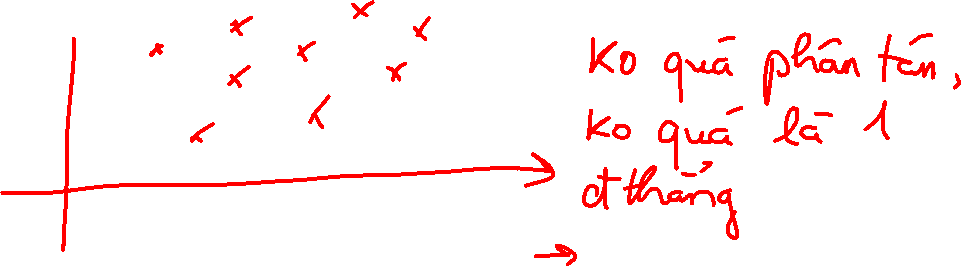 Ko quá phân tán,
ko quá là 1
đthẳng